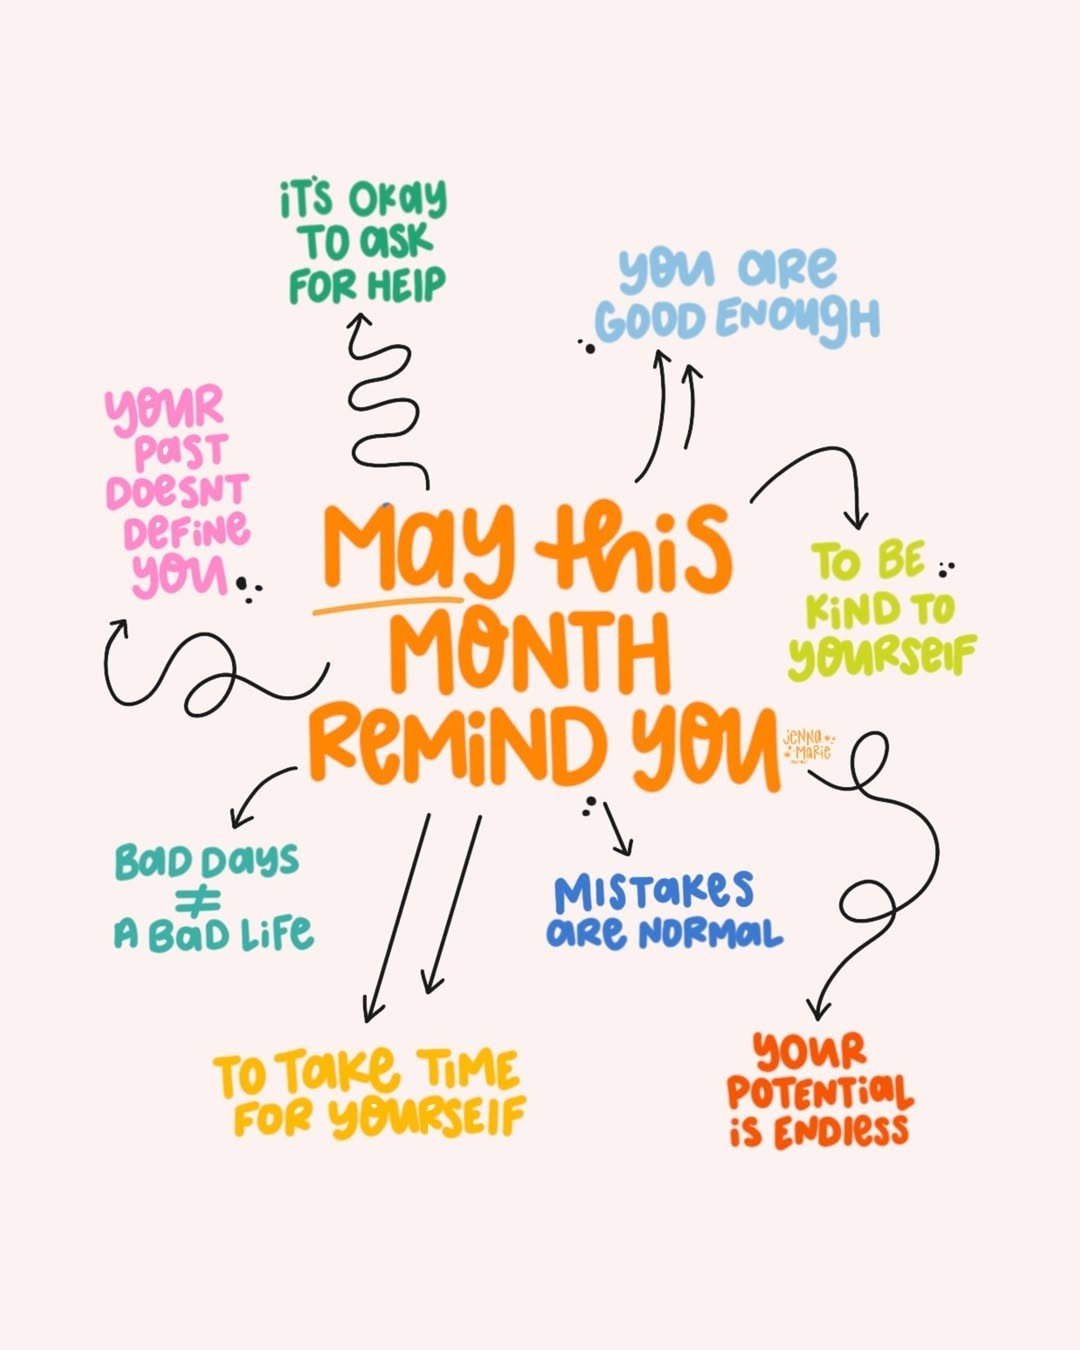 iT'S OKay
TO aSK
FOR HElP
you aRe
GOOD ENOugH
youR
PaST
DOeSNT
DeFiNe
you
May this
MONTH
ReMiND you
TO BE
KiND TO
youRSelF
JENNa
MaRiE
BaD Days
≠
A BaD LiFe
MISTaKeS
aRe NORMaL
TO TaKe TiME
FOR youRSElF
youR
POTENTiaL
iS ENDleSS